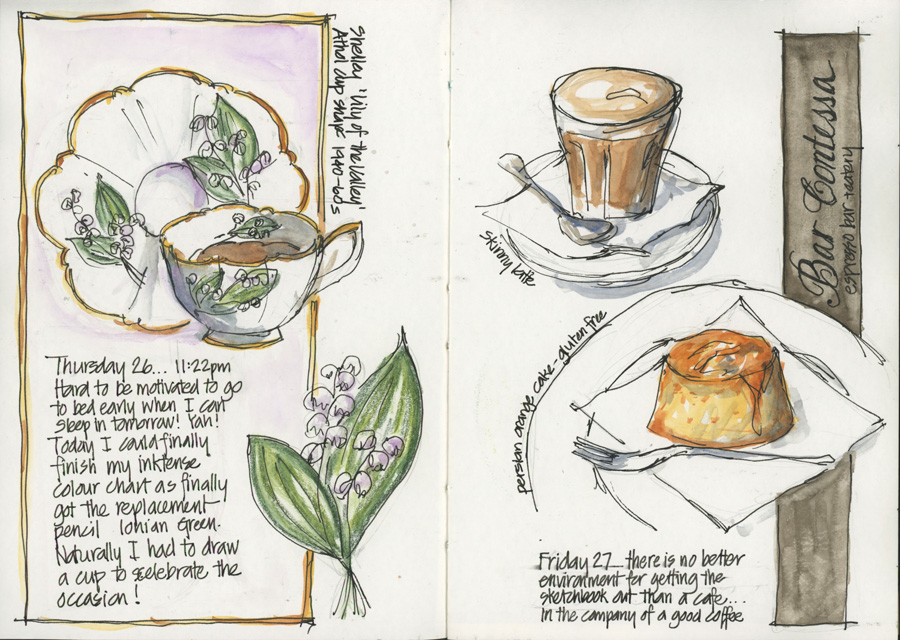 Shelley 'Lily of the Valley'
Athol cup shape 1940-60s
Thursday 26... 11:22pm
Hard to be motivated to go
to bed early when I can
sleep in tomorrow! Yah!
Today I could finally
finish my inktense
colour chart as finally
got the replacement
pencil Ionian Green.
Naturally I had to draw
a cup to scelebrate the
occasion!
skinny latte
Bar Contessa
espresso bar + eatery
persian orange cake - gluten free
Friday 27_ there is no better
environment for getting the
sketchbook out than a cafe...
in the company of a good coffee